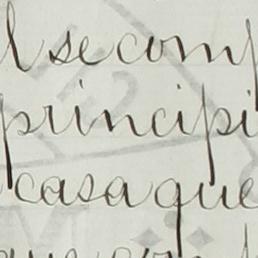 l se comp
principi
casa que